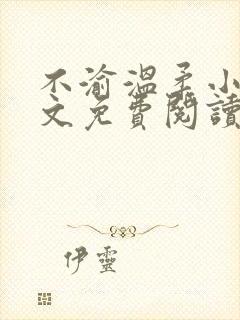 不渝溫柔小
文免費閱讀
伊靈